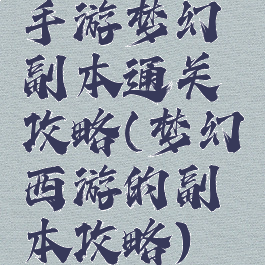 手游梦幻
副本通关
攻略(梦幻
西游的副
本攻略)